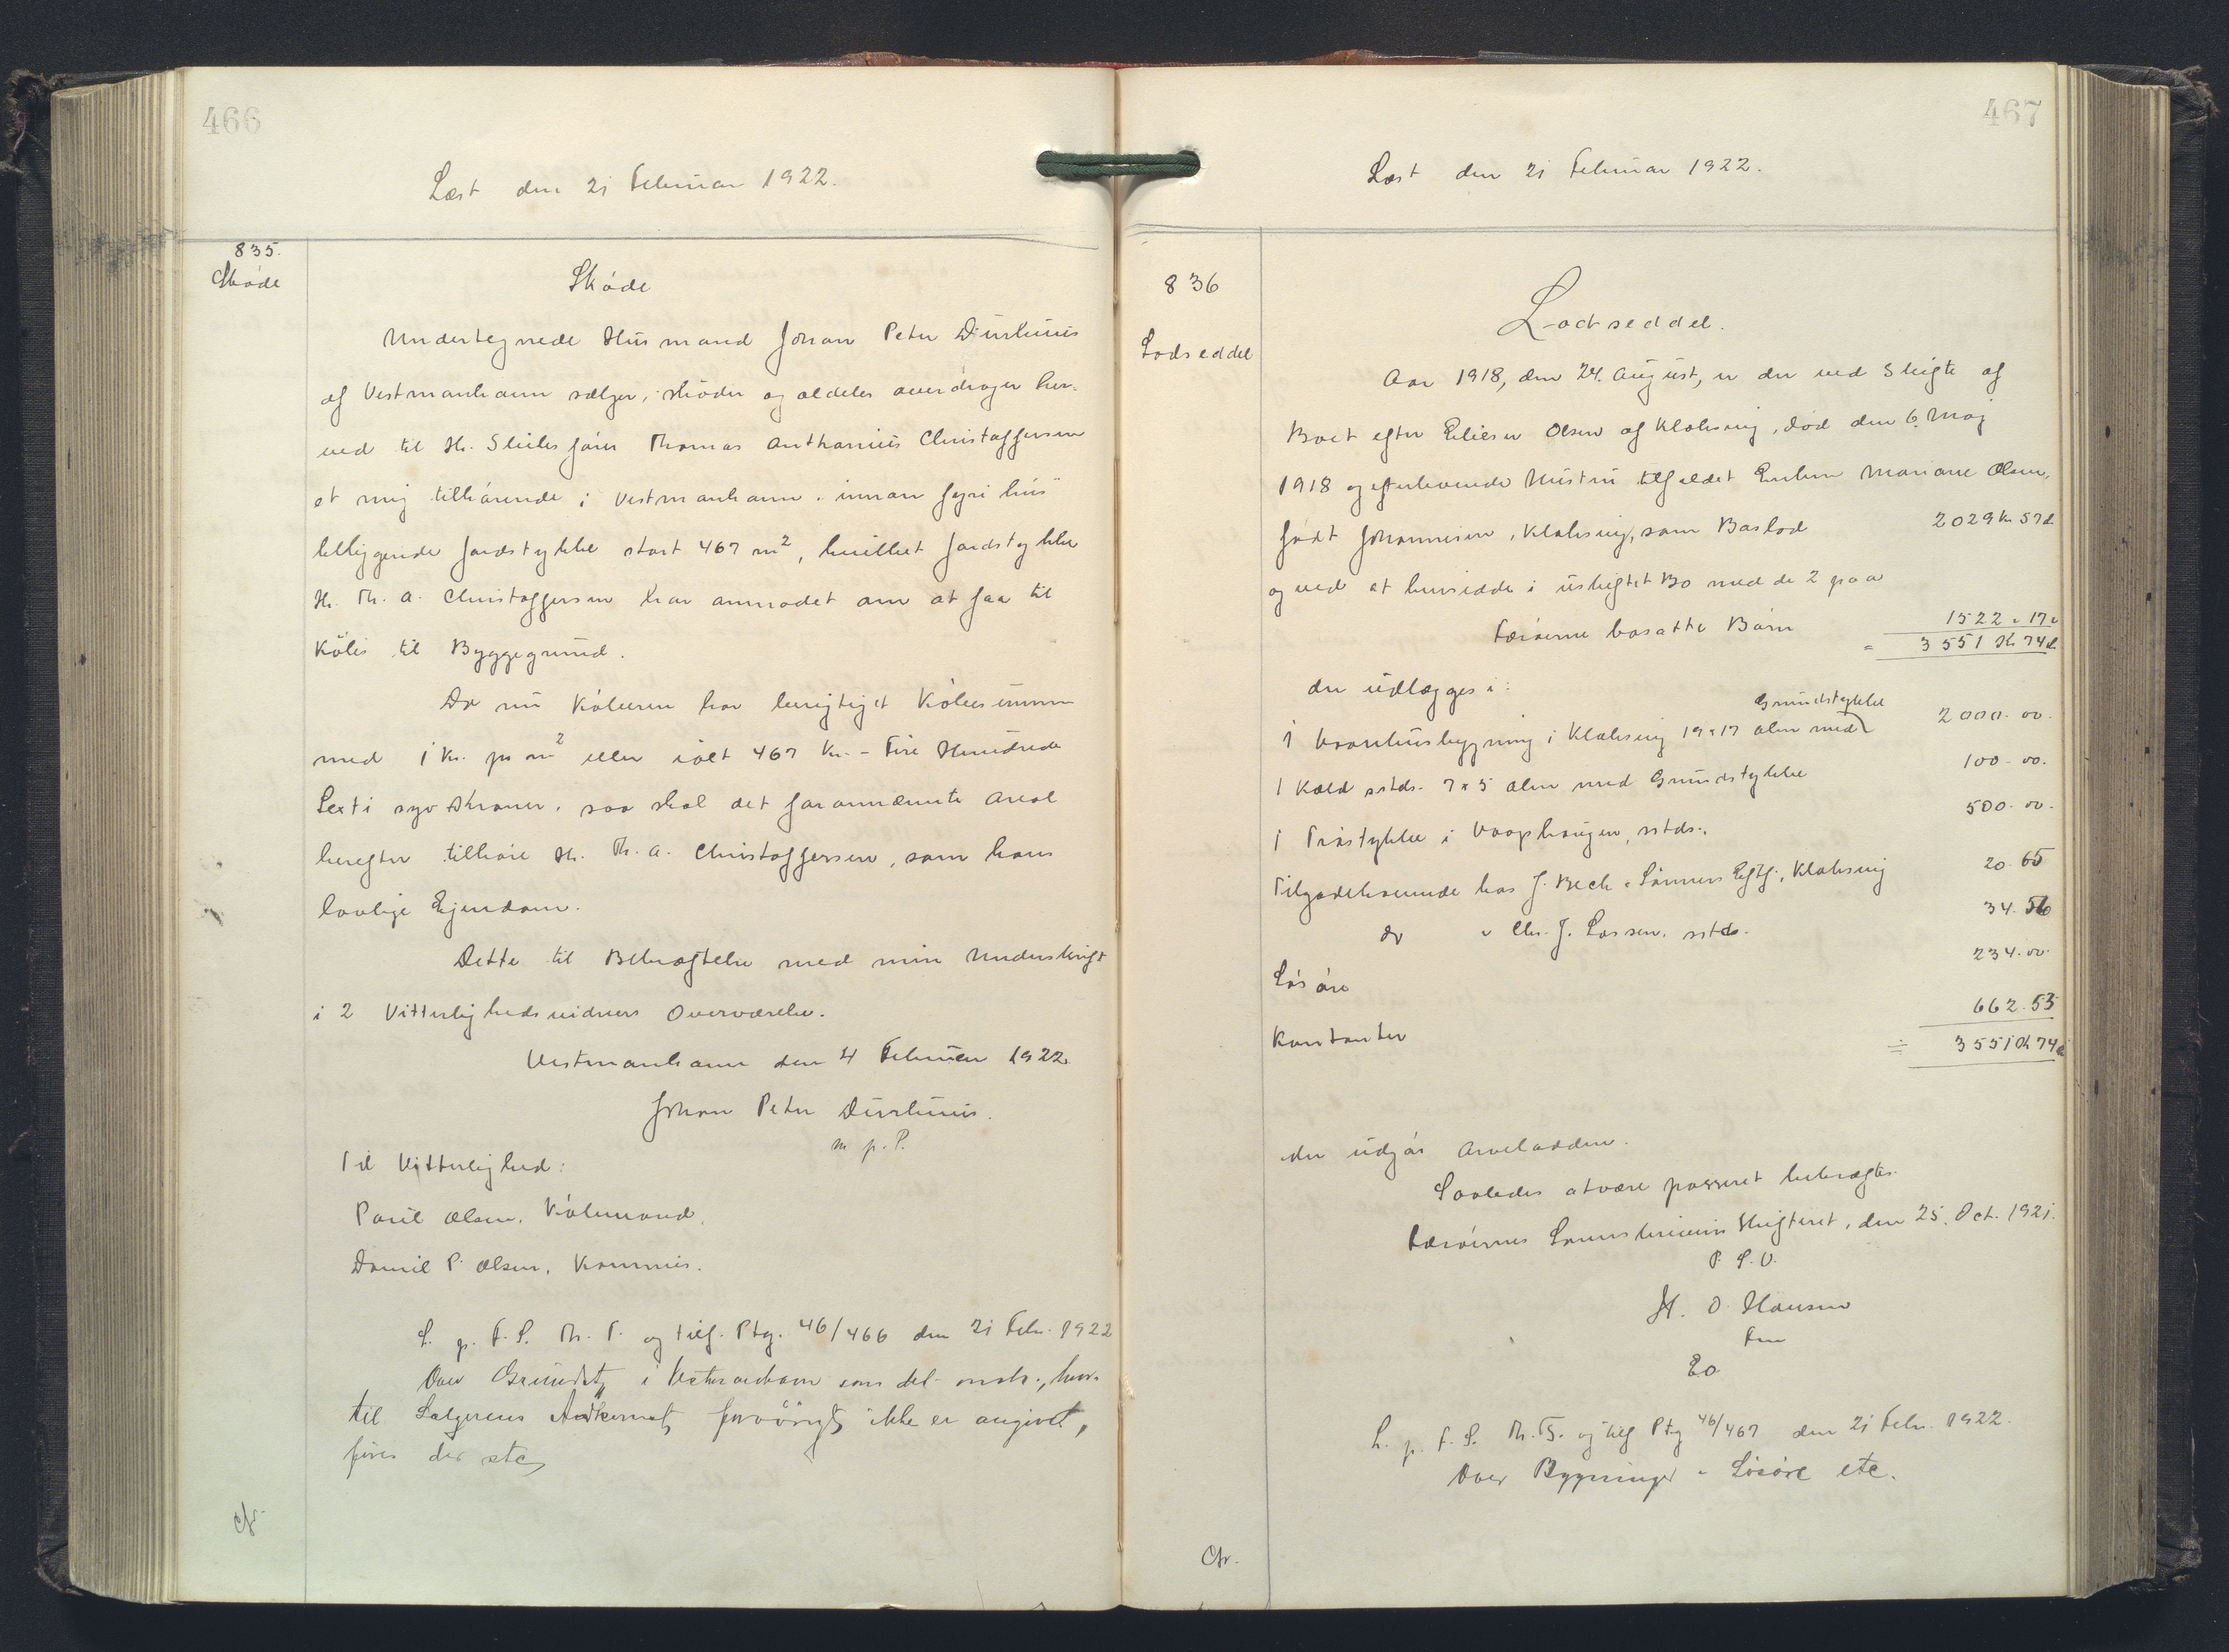 466
Læst den 21 Februar 1922.
835.
Skøde
Skøde
Undertegnede Husmand Johan Peter Durhuus
af Vestmanhavn sælger, skøder og aldeles overdrager her-
ved til Hr. Skibsfører Thomas Anthonius Christoffersen
et mig tilhørende i Vestmanhavn "innan fyri hús"
beliggende Jordstykke stort 467 m², hvilket Jordstykke
Hr. Th. A. Christoffersen har anmodet om at faa til
Købs til Byggegrund.
Da nu Køberen har berigtiget Købesummen
med 1 Kr. pr m² eller ialt 467 Kr. - Fire Hundrede
Sexti syv Kroner, saa skal det forannævnte Areal
herefter tilhøre Hr. Th. A. Christoffersen, som hans
lovlige Ejendom.
Dette til Bekræftelse med min Underskrift
i 2 Vitterlighedsvidners Overværelse.
Vestmanhavn den 4 Februar 1922
Johan Peter Durhuus.
m. p. P.
Til Vitterlighed:
Poul Olsen, Købmand.
Daniel P. Olsen, Kommis.
L. p. F. S. Th. P. og tilf. Ptg. 46/466 den 21 Febr. 1922
Over Grundst. i Vestmanhavn som det omh., hvor-
til Sælgerens Adkomst forøvrigt ikke er angivet,
føres der etc
Cfr.
467
Læst den 21 Februar 1922.
836
Lodseddel
Lodseddel.
Aar 1918, den 24. August, er der ved Skifte af
Boet efter Elieser Olsen af Klaksvig, død den 6. Maj
1918 og efterlevende Hustru tilfaldet Enken Mariane Olsen,
født Johannesen, Klaksvig, som Boslod 2029 Kr 57 Ø
og ved at hensidde i uskiftet Bo med de 2 paa
Færøerne bosatte Børn 1522 " 17 "
= 3551 Kr 74 Ø
der udlægges i:
1 Vaanhusbygning i Klaksvig 19 x 17 alen med Grundstykke 2000.00.
1 Kæld sstds. 7 x 5 alen med Grundstykke 100-00.
1 Trøstykke i Vaaphaugen, sstds. 500.00.
Tilgodehavende hos J. Bech & Sønners Eftf., Klaksvig 20.65
do " Chr. J. Larsen, sstds. 34.56
Løsøre 234.00
Kontanter 662.53
= 3551 Kr 74 Ø
der udgør Arvelodden.
Saaledes at være passeret bekræftes.
Færøernes Sorenskriveri Skifteret, den 25. Oct. 1921.
P. S. V.
H. O. Hansen
Fm
Eo
L. p. F. S. Th. T. og tilf Ptg 46/467 den 21 Febr. 1922.
Over Bygninger & Løsøre etc.
Cfr.